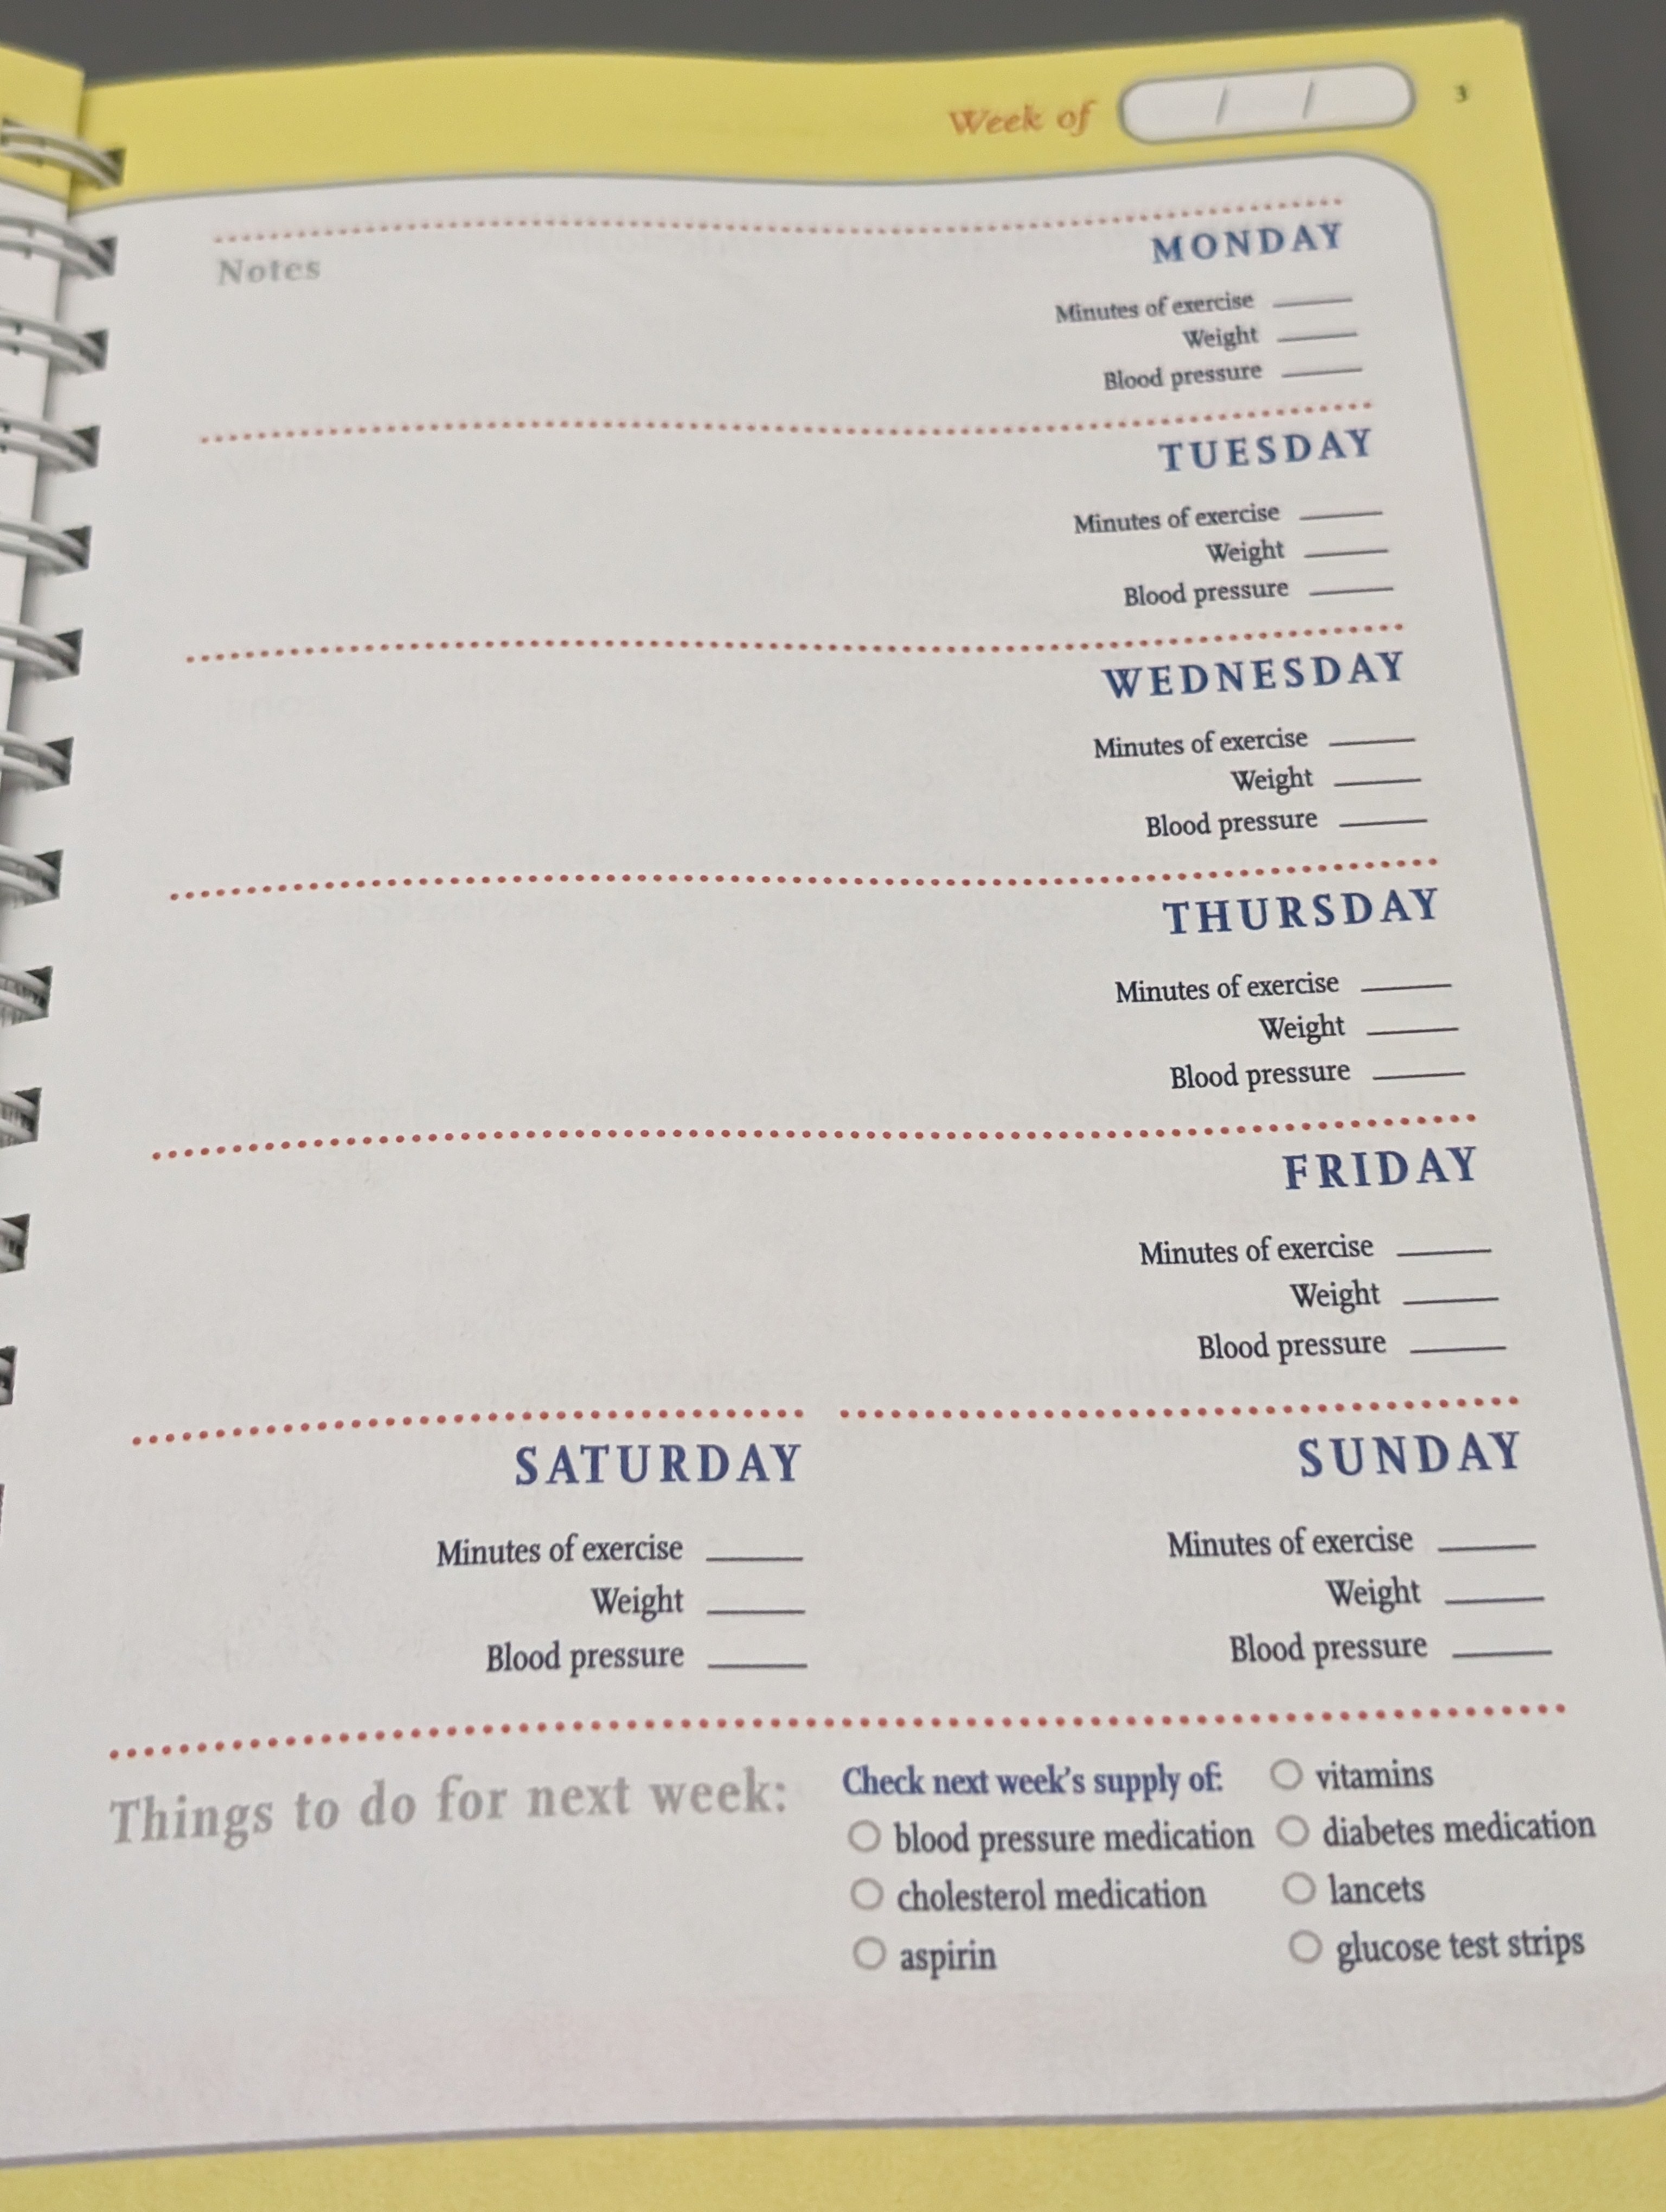 Week of / / 3
Notes
MONDAY
Minutes of exercise
Weight
Blood pressure
TUESDAY
Minutes of exercise
Weight
Blood pressure
WEDNESDAY
Minutes of exercise
Weight
Blood pressure
THURSDAY
Minutes of exercise
Weight
Blood pressure
FRIDAY
Minutes of exercise
Weight
Blood pressure
SATURDAY
Minutes of exercise
Weight
Blood pressure
SUNDAY
Minutes of exercise
Weight
Blood pressure
Things to do for next week:
Check next week's supply of:
blood pressure medication
cholesterol medication
aspirin
vitamins
diabetes medication
lancets
glucose test strips